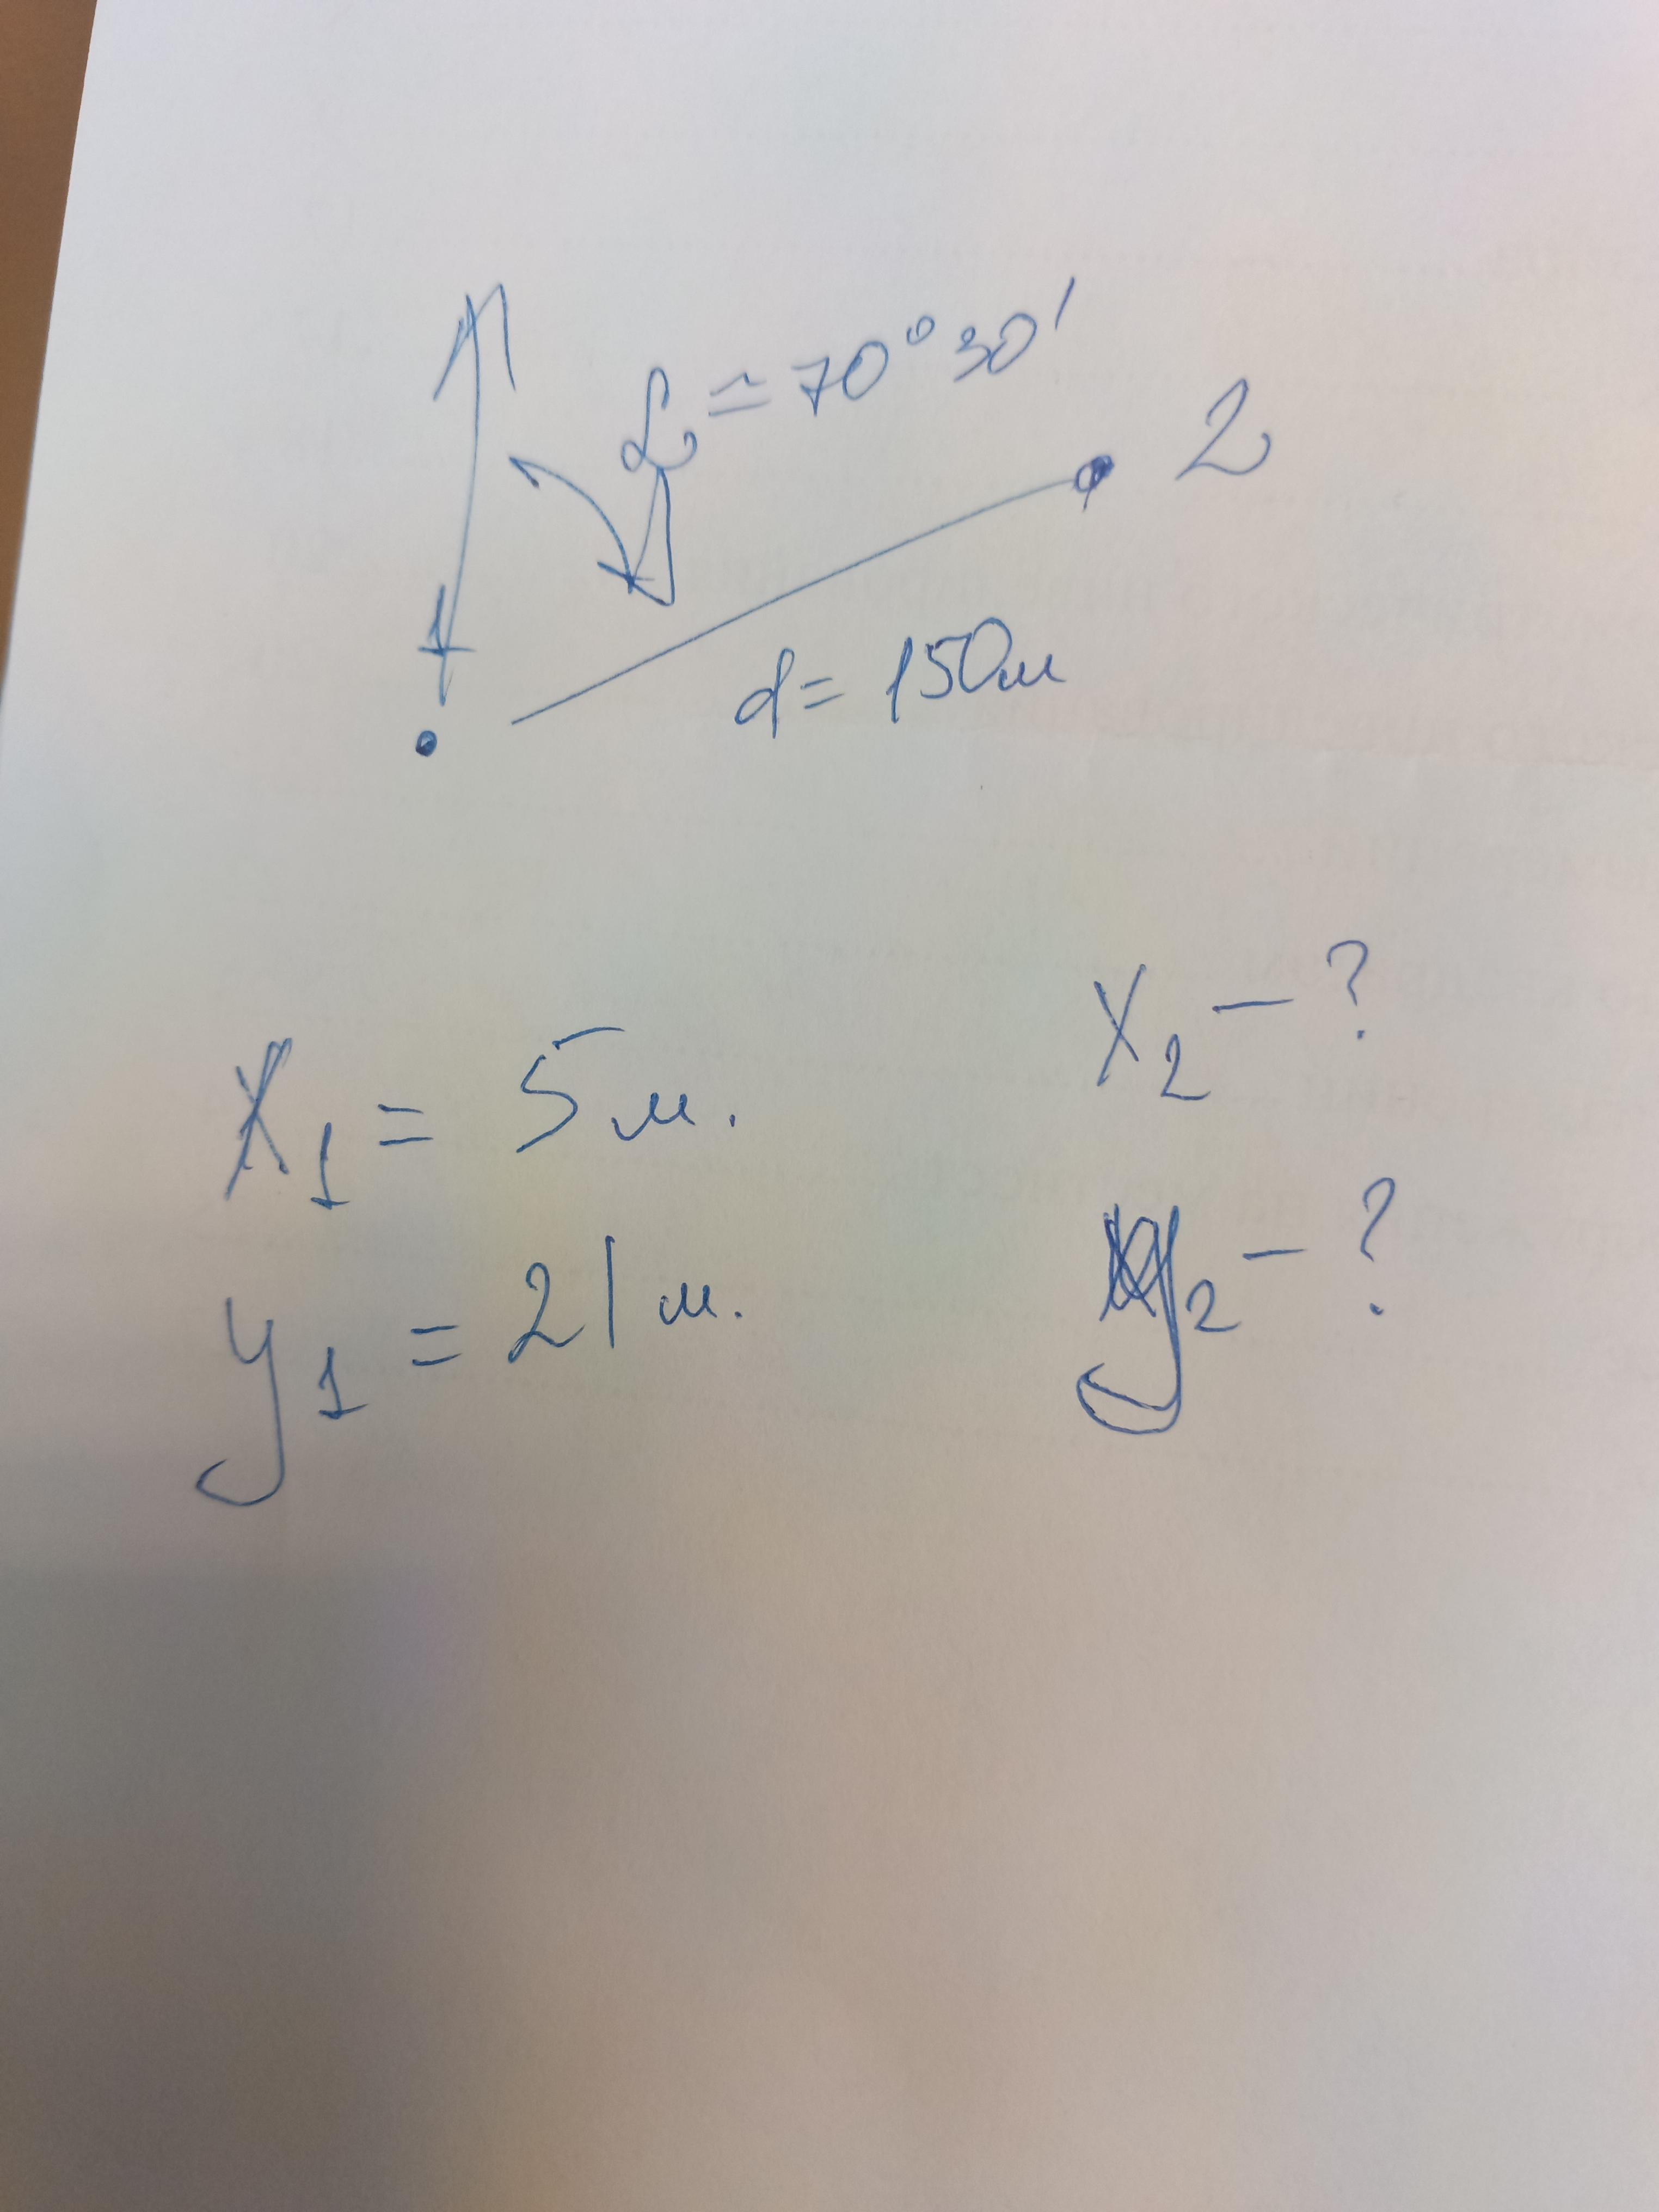 α = 70°30'
2
1
d = 150м
x₁ = 5 м.
y₁ = 21 м.
x₂ - ?
y₂ - ?